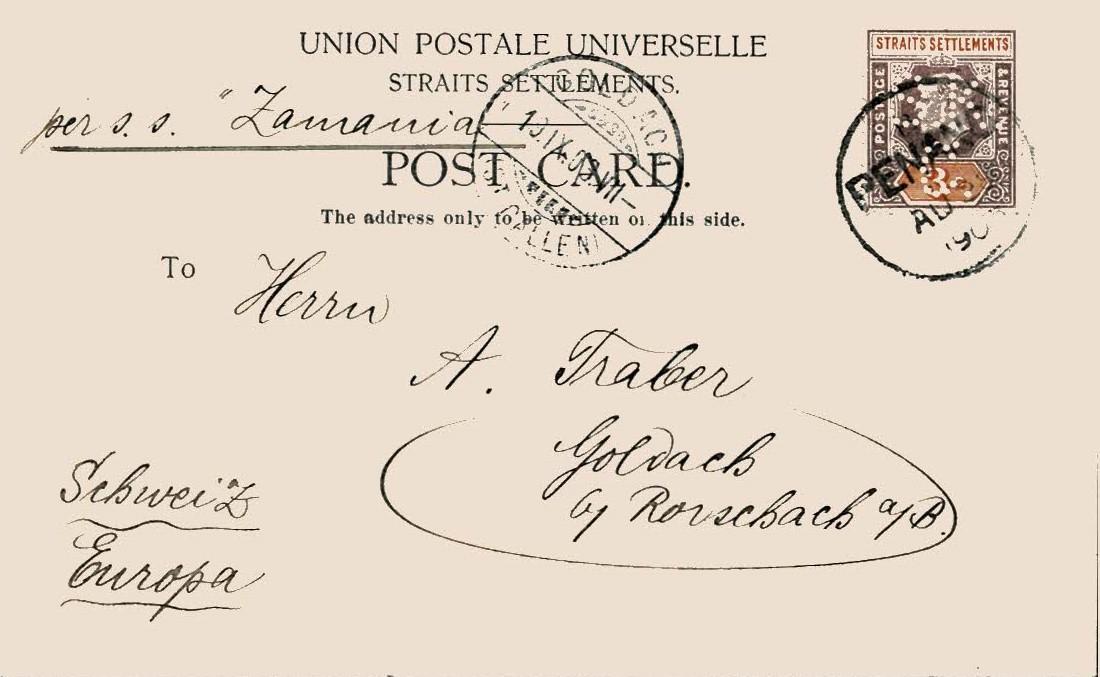 UNION POSTALE UNIVERSELLE
STRAITS SETTLEMENTS.
per s. s. "Zamania
POST CARD.
The address only to be written on this side.
STRAITS SETTLEMENTS
POSTAGE
& REVENUE
3c
PENANG
AU
190
GOLDACH
IX
VII–
(ST. GALLEN)
To
Herrn
A. Traber
Goldach
by Rorschach a/B.
Schweiz
Europa